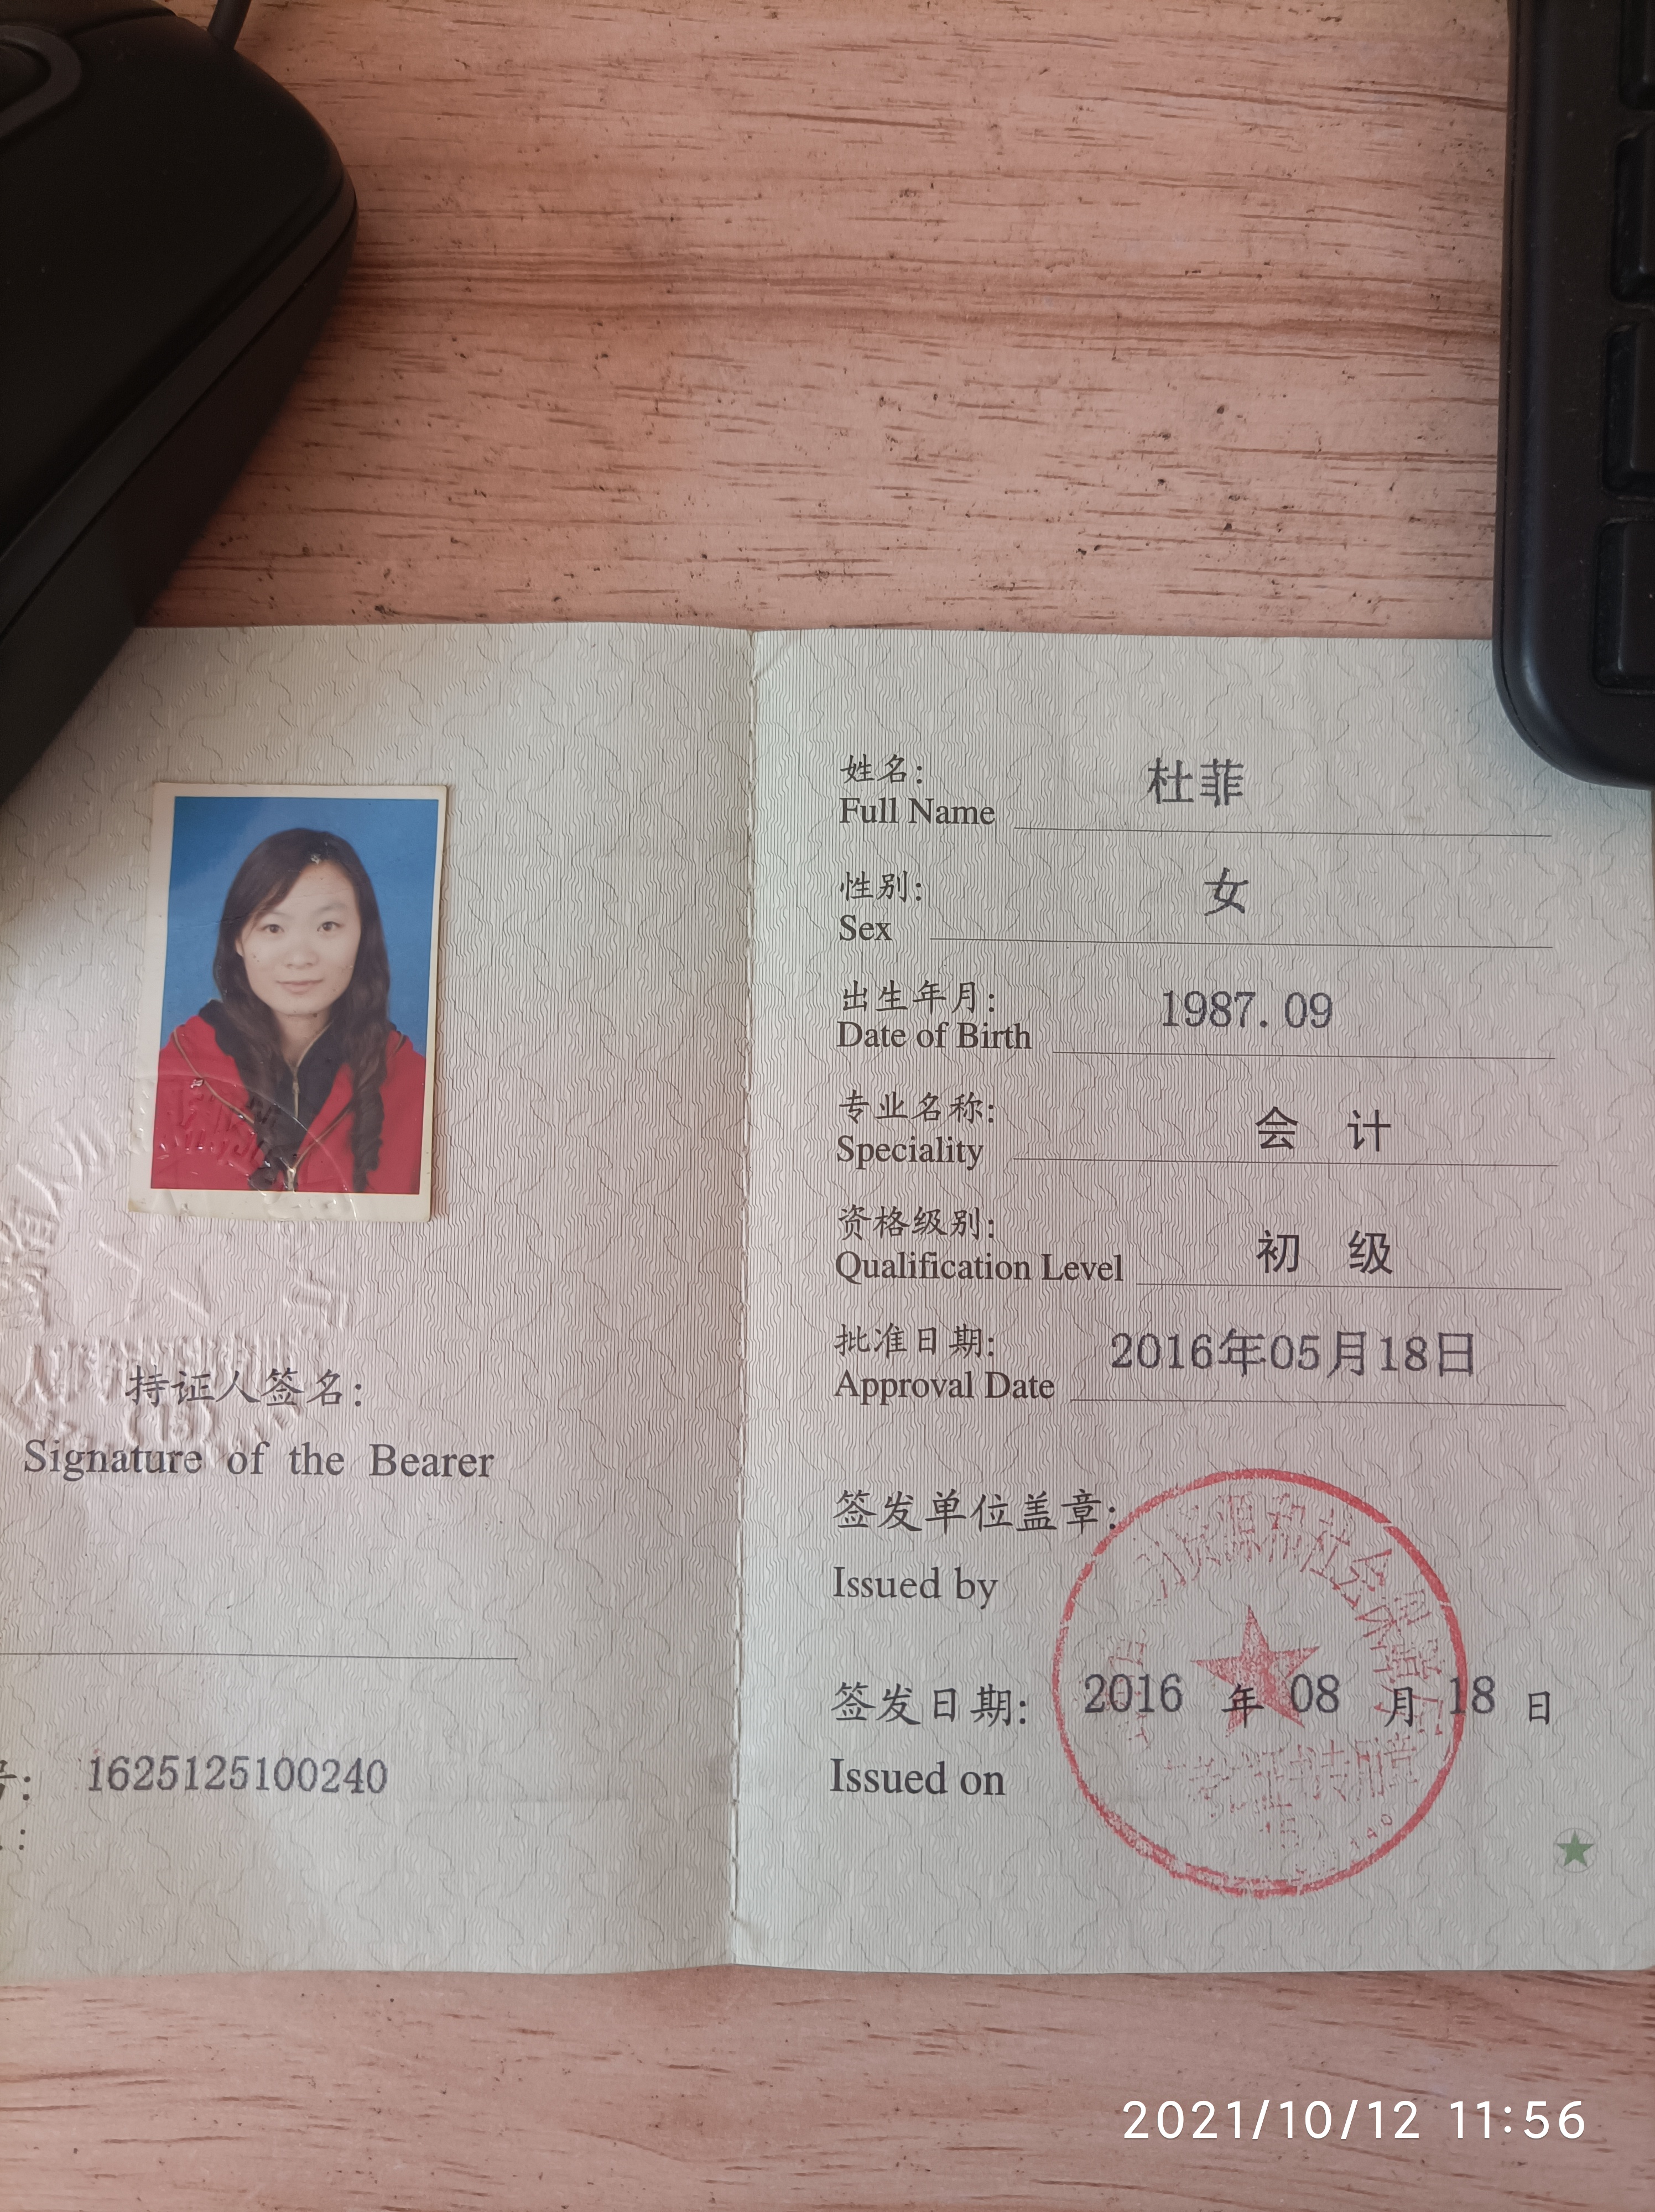 持证人签名:
Signature of the Bearer
号: 1625125100240
姓名: 杜菲
Full Name
性别: 女
Sex
出生年月: 1987.09
Date of Birth
专业名称: 会 计
Speciality
资格级别: 初 级
Qualification Level
批准日期: 2016年05月18日
Approval Date
签发单位盖章:
Issued by
力资源和社会保障厅
证书专用章
签发日期: 2016 年 08 月 18 日
Issued on
2021/10/12 11:56